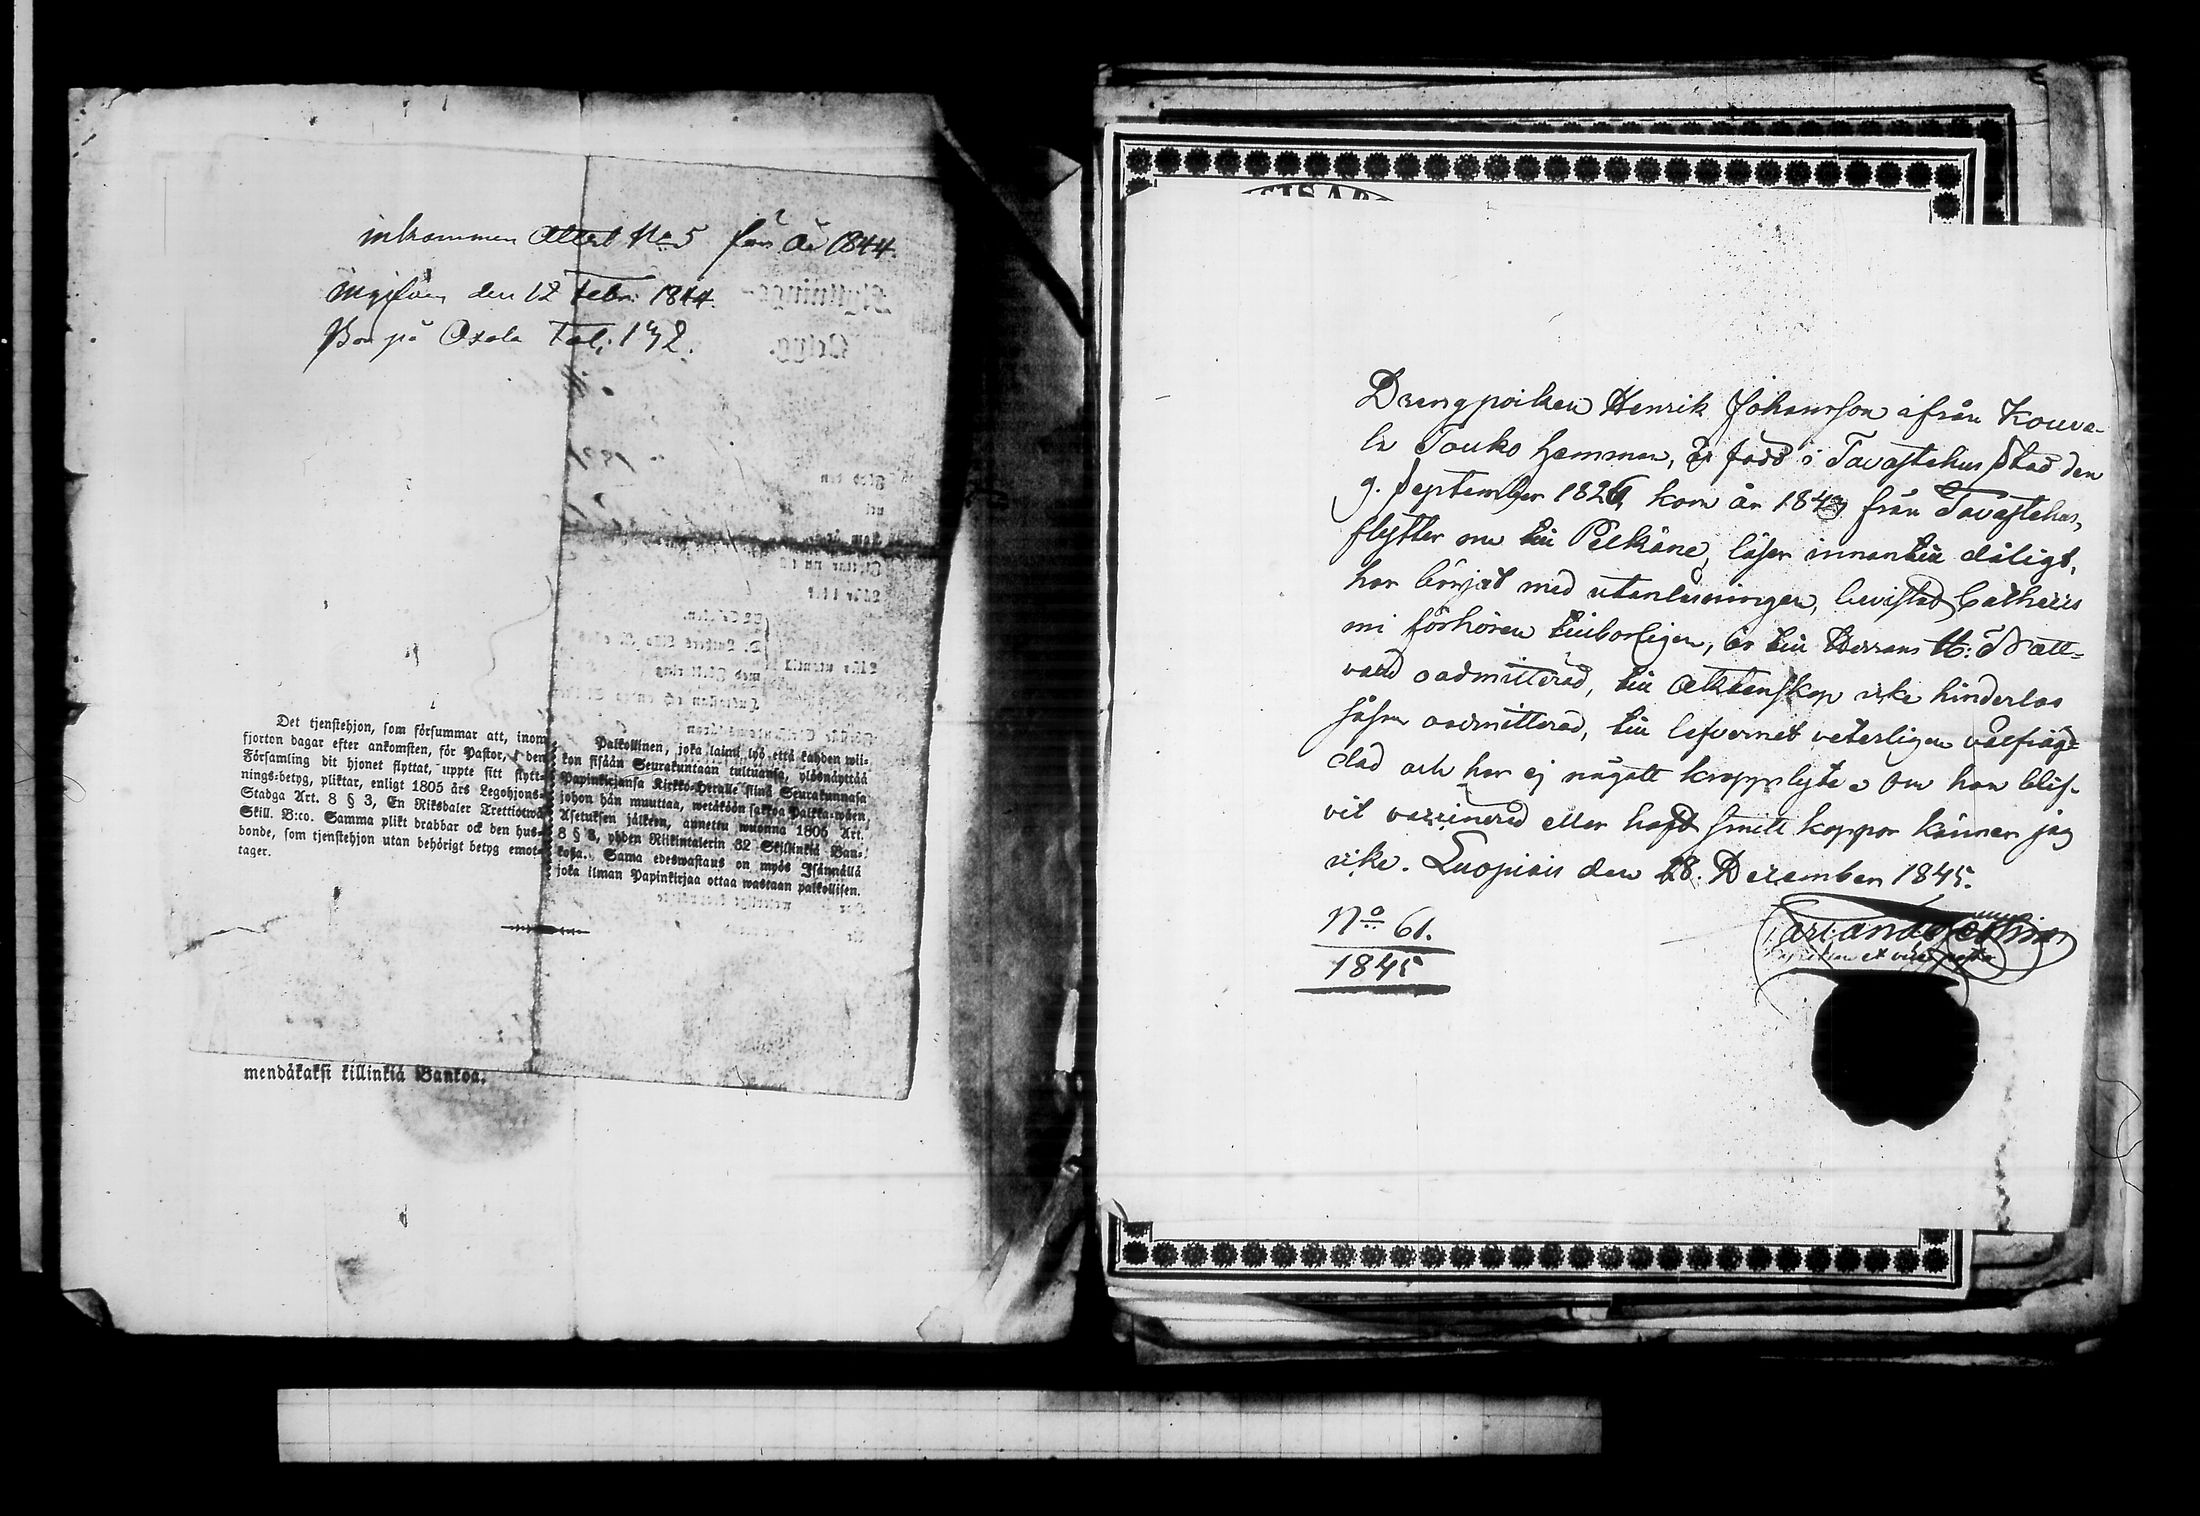 inkommen Attest No 5 för År 1844.
den 12 Febr: 1844.
Bor på Oxala Fol: 132.
Det tjenstehjon, som försummar att, inom
fjorton dagar efter ankomsten, för Pastor, i den
Församling dit hjonet flyttat, uppte sitt flytt-
nings-betyg, pliktar, enligt 1805 års Legohjons-
Stadga Art. 8 § 3, En Riksdaler Trettiotwå
Skill. B:co. Samma plikt drabbar ock den hus-
bonde, som tjenstehjon utan behörigt betyg emot-
tager.
Palkollinen, joka laimi lyö että kahden wii-
kon sisään Seurakuntaan tultuansa, ylösnäyttää
Papinkirjansa Kirkko-Herralle siinä Seurakunnasa
johon hän muuttaa, wetäköön sakkoa Palkka-wäen
Asetuksen jälkeen, annettu wuonna 1805 Art.
8 § 3, yhden Riikintalerin 32 Skillinkiä Ban-
kosa. Sama edeswastaus on myös Isännällä
joka ilman Papinkirjaa ottaa wastaan palkollisen.
mendäkaksi killinkiä Bankoa.
Drengpoiken Henrik Johansson ifrån Kouva-
la Touko hemman, är född i Tavastehus Stad den
9. September 1826, kom år 1843 från Tavastehus,
flytter nu till Pelkäne, läser innantill dåligt,
har börjat med utanläsningen, bevistad Catheris
mi förhören tillbörligen, är till Herrans H: Natt-
vard oadmitterad, till Äktenskap icke hinderlös
såsom oadmitterad, till lefvernet veterligen välfräg-
dad och har ej någott kroppslyte. Om han blif-
vit vaccinered eller haft smitt koppor känner jag
icke. Luopiois den 18. December 1845.
No 61.
1845